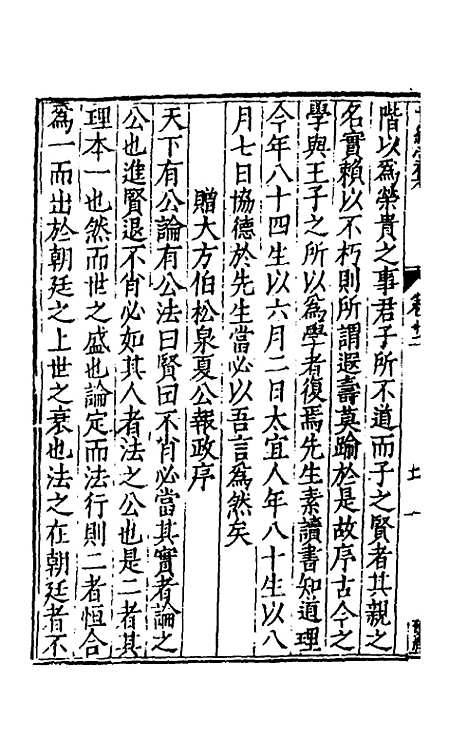 階以為榮貴之事君子所不道而子之賢者其親之
名實賴以不朽則所謂遐壽莫踰於是故序古今之
學與王子之所以為學者復焉先生素讀書知道理
今年八十四生以六月二日太宜人年八十生以八
月七日協德於先生當必以吾言為然矣
贈大方伯松泉夏公報政序
天下有公論有公法曰賢曰不肖必當其實者論之
公也進賢退不肖必如其人者法之公也是二者其
理本一也然而世之盛也論定而法行則二者恒合
為一而出於朝廷之上世之衰也法之在朝廷者不